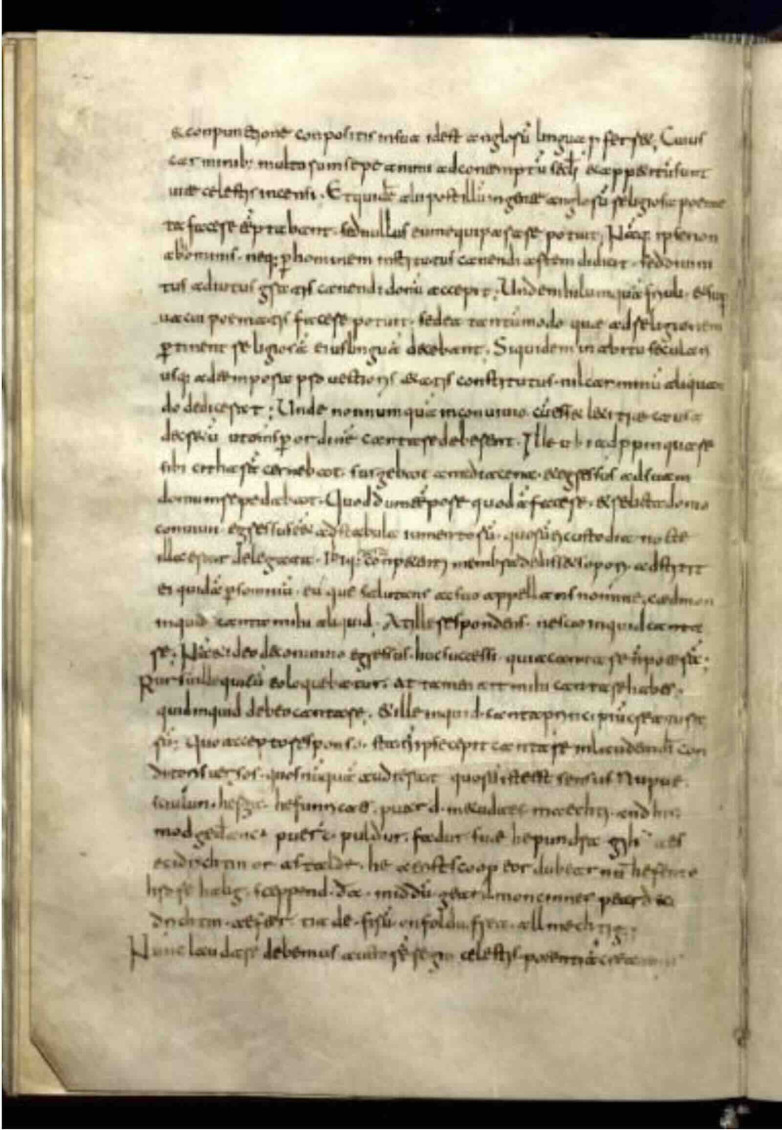 & conpunctione conpositis insua idest anglosũ lingua p fer ret; Cuius
carminib; multorum sepe animi adcontemptũ secli & appetitũ sunt
uitae celestis incensi. Et quidẽ alii post illũ ingente anglorũ religiosa poema
ta facere tẽptabant. sed nullus eum equiparare potuit; Nãq; ipse non
ab hominib. neq; p hominem institutus canendi artem didicit. sed diuini
tus adiutus gratis canendi donũ accepit; Unde nihil umquã friuoli & sup
uacui poematis facere potuit. sed ea tantũ modo que ad religionem
ptinent religiosã eius linguã decebant; Siquidem in abitu seculari
usq; ad tempora prouectioris aetatis constitutus. nil carminũ aliquan
do dedicerat; Unde nonnumquã inconuiuio. cũ esset lecitiae causa
decretũ ut omnis p ordinẽ cantare deberent. Ille ubi adppinquare
sibi citharã cernebat. surgebat amedia cena. & egressus ad suam
domum repedabat. Quod dum tẽpore quodã faceret. & relicta domo
conuiuii egressus eẽt ad stabula iumentorũ. quorũ ei custodia nocte
illa erat delegata. Ibiq; conpetenti membra dedisset sopori. adstitit
ei quidã p somniũ. eũque salutans ac suo appellans nomine. caedmon
inquid canta mihi aliquid. At ille respondens. nescio inquid canta
re; Nã & ideo deconuiuio egressus. huc successi. quia cantare ñ poterã;
Rursũ ille qui cũ eo loquebatur. at tamen ait mihi cantare habes.
quid inquid debeo cantare. & ille inquid. canta principiũ creaturá
rũ; Quo accepto responso. statĩ ipse cepit cantare in laudem dĩ con
ditoris uersos. quos nũquã audierat quorũ iste est sensus Nu pue
sciulun. hergá. hefunricaes. puard. metudaes. maechti. and his
mod gedanc. puerc. puldur. fadur. sue he pundra gih aes
eci drichtin or astalde. he aerist scoop eor dubear nũ hefento
hrofe halig. sceppend. da. middũ gearð. moncinnes peard eci
drichtin. aefter. tia de. firũ. onfoldu. frea. allmechtig;
Nunc laudare debemus auctorẽ regni celestis. potentiã creatoris